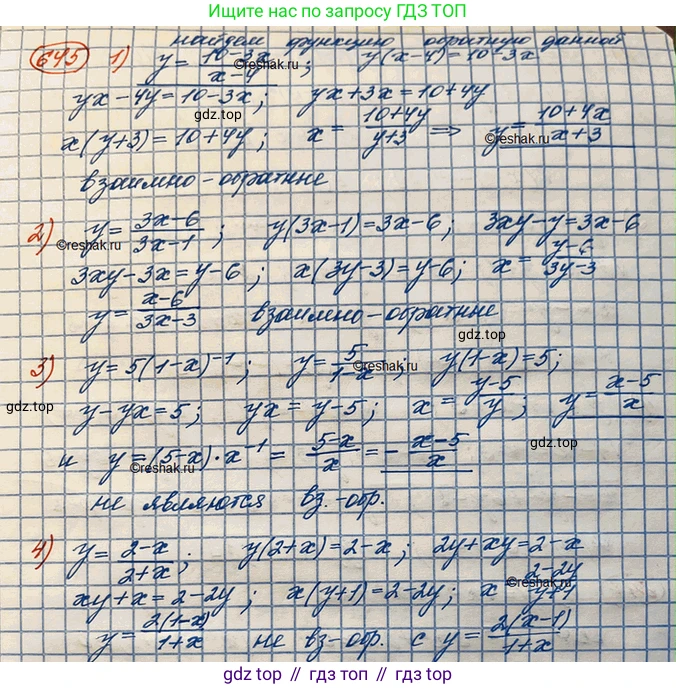 Ищите нас по запросу ГДЗ ТОП
найдем функцию обратную данной
645 1) y = (10-3x)/(x-4) ; y(x-4) = 10-3x
©reshak.ru
yx - 4y = 10 - 3x ; yx + 3x = 10 + 4y
gdz.top
x(y+3) = 10 + 4y ; x = (10+4y)/(y+3) ⇒ y = (10+4x)/(x+3)
©reshak.ru
взаимно - обратные
2) y = (3x-6)/(3x-1) ; y(3x-1) = 3x-6 ; 3xy - y = 3x - 6
©reshak.ru
3xy - 3x = y - 6 ; x(3y-3) = y-6 ; x = (y-6)/(3y-3)
y = (x-6)/(3x-3) взаимно - обратные
gdz.top
3) y = 5(1-x)⁻¹ ; y = 5/(1-x) ; y(1-x) = 5 ;
©reshak.ru
y - yx = 5 ; yx = y - 5 ; x = (y-5)/y ; y = (x-5)/x
gdz.top
и y = (5-x)·x⁻¹ = (5-x)/x = -(x-5)/x
©reshak.ru gdz.top
не являются вз.-обр.
4) y = (2-x)/(2+x) ; y(2+x) = 2-x ; 2y + xy = 2 - x
xy + x = 2 - 2y ; x(y+1) = 2-2y ; x = (2-2y)/(y+1)
©reshak.ru
y = 2(1-x)/(1+x) не вз-обр. с y = 2(x-1)/(1+x)
gdz.top // gdz.top // gdz.top